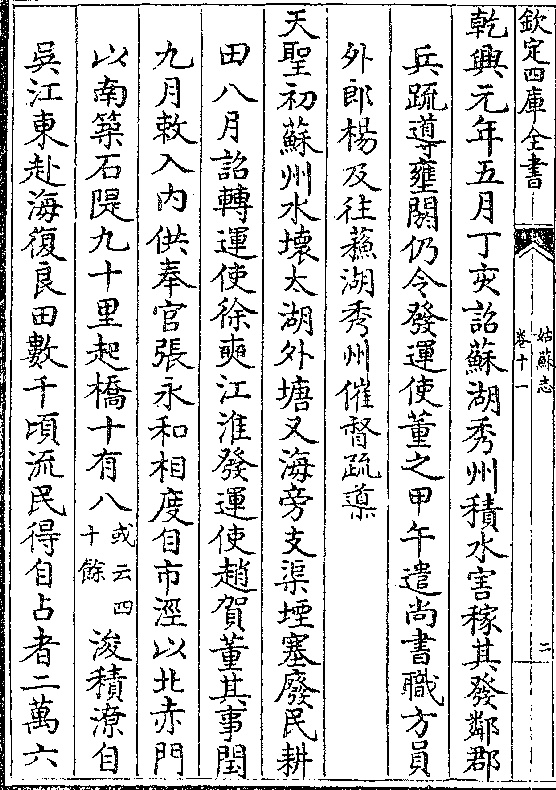 欽定四庫全書
姑蘇志
卷十一
二
乾興元年五月丁亥詔蘇湖秀州積水害稼其發鄰郡
兵疏導壅閼仍令發運使董之甲午遣尚書職方員
外郎楊及往蘓湖秀州催督疏導
天聖初蘇州水壞太湖外塘又海旁支渠堙塞廢民耕
田八月詔轉運使徐奭江淮發運使趙賀董其事閏
九月敕入內供奉官張永和相度自市涇以北赤門
以南築石隄九十里起橋十有八或云四十餘浚積潦自
吳江東赴海復良田數千頃流民得自占者二萬六